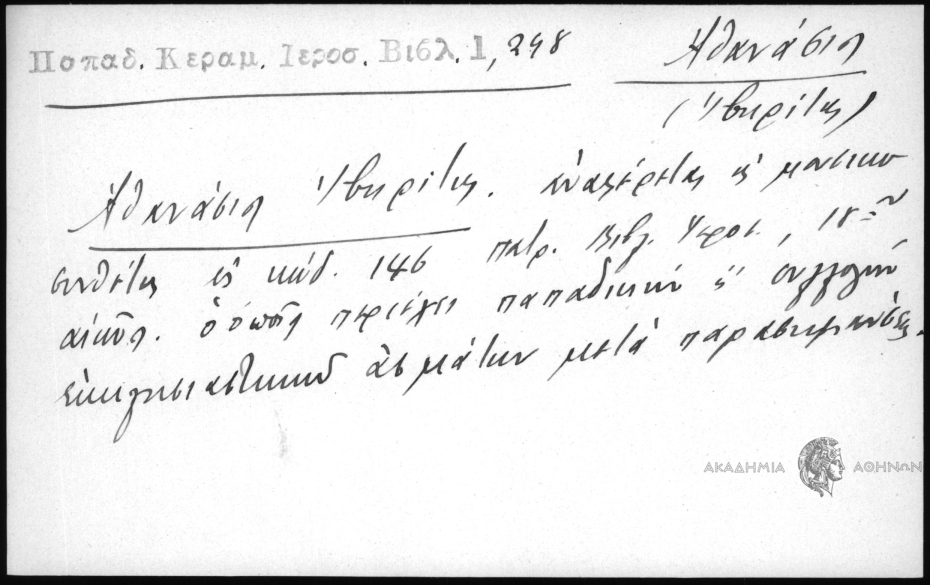 Παπαδ. Κεραμ. Ιεροσ. Βιβλ. 1, 248
Ἀθανάσιος
(Ἰβηρίτης)
Ἀθανάσιος Ἰβηρίτης. ἀναφέρεται ὡς μουσικο
συνθέτης εἰς κώδ. 146 πατρ. Βιβλ. Ἱεροσ., 18ου
αἰῶνος. ὅστις περιέχει παπαδικὴν ἢ συλλογὴν
ἐκκλησιαστικῶν ἀσμάτων μετὰ παρασημάνσεως.
ΑΚΑΔΗΜΙΑ ΑΘΗΝΩΝ